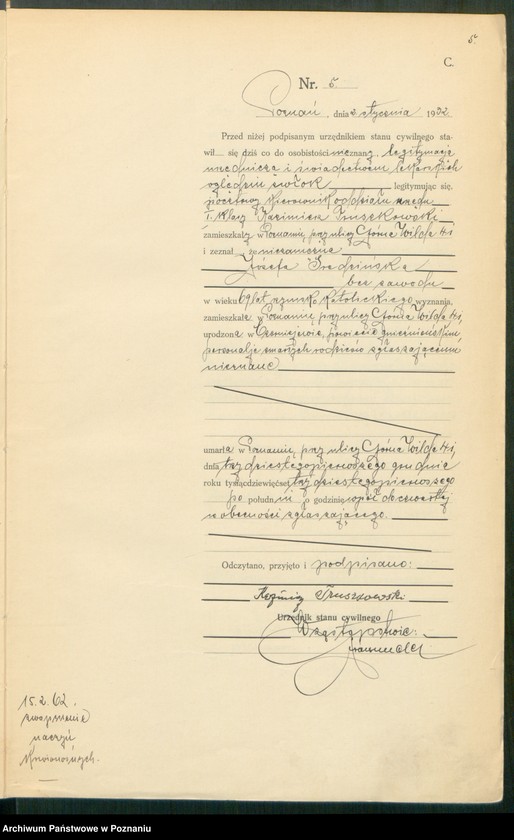 5.
C.
Nr. 5.
Poznań, dnia 2. stycznia 1932.
Przed niżej podpisanym urzędnikiem stanu cywilnego sta-
wił się dziś co do osobistości nieznany, legitymacją
urzędniczą i świadectwem lekarskich
oględzin zwłok legitymując się,
pocztowy kierownik oddziału urzędu
I. klasy Kazimierz Truszkowski
zamieszkały w Poznaniu, przy ulicy Górna Wilda 41
i zeznał, że niezamężna
Józefa
bez zawodu
w wieku 69 lat, rzymsko katolickiego wyznania,
zamieszkała w Poznaniu, przy ulicy Górna Wilda 41,
urodzona w Czerniejewie, powiecie gnieźnieńskim,
personalje zmarłych rodziców zgłaszającemu
nieznane
umarła w Poznaniu, przy ulicy Górna Wilda 41,
dnia trzydziestego pierwszego grudnia
roku tysiącdziewięćset trzydziestego pierwszego
po połudn iu o godzinie wpół do czwartej
w obecności zgłaszającego.
Odczytano, przyjęto i podpisano:
Kazimierz Truszkowski
Urzędnik stanu cywilnego
W zastępstwie:
15.2.62.
zwapnienie
naczyń
krwionośnych.
Archiwum Państwowe w Poznaniu